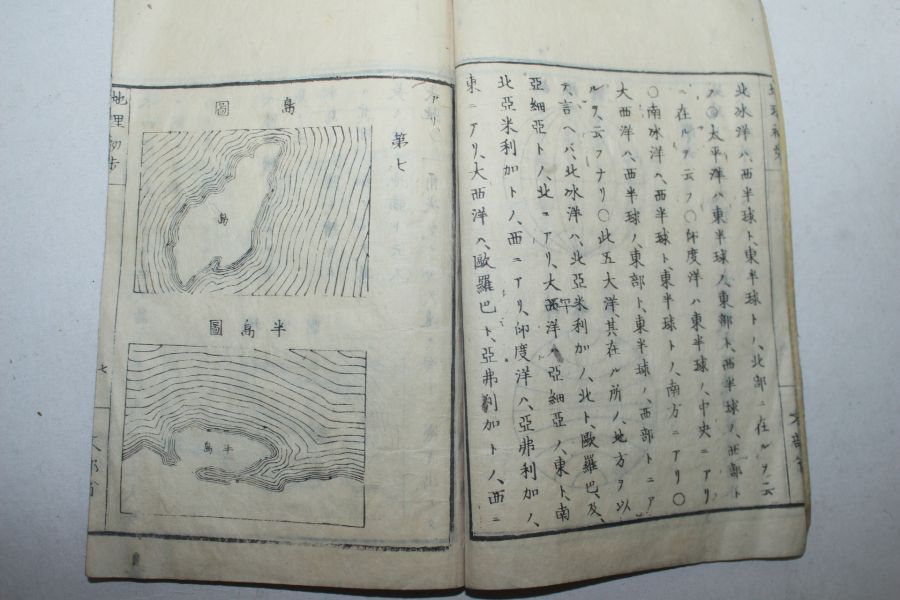 北冰洋ハ、西半球ト、東半球トノ、北部ニ在ルヲ云
フ○太平洋ハ東半球ノ、東部ト、西半球ノ、西部ト
ニ在ルヲ云フ○印度洋ハ東半球ノ、中央ニアリ
○南冰洋ハ、西半球ト、東半球トノ、南方ニアリ○
大西洋ハ、西半球ノ、東部ト、東半球ノ、西部トニア
ルヲ、云フナリ○此五大洋、其在ル所ノ、地方ヲ以
テ、言ヘバ、北冰洋ハ、北亞米利加ノ、北ト、歐羅巴、及、
亞細亞トノ、北ニアリ、大平洋ハ亞細亞ノ、東ト、南
北亞米利加トノ、西ニアリ、印度洋ハ、亞弗利加ノ、
東ニアリ、大西洋ハ、歐羅巴ト、亞弗利加トノ、西ニ
アリ
第七
島圖
島
半島圖
半島
地理初步
七
文部省